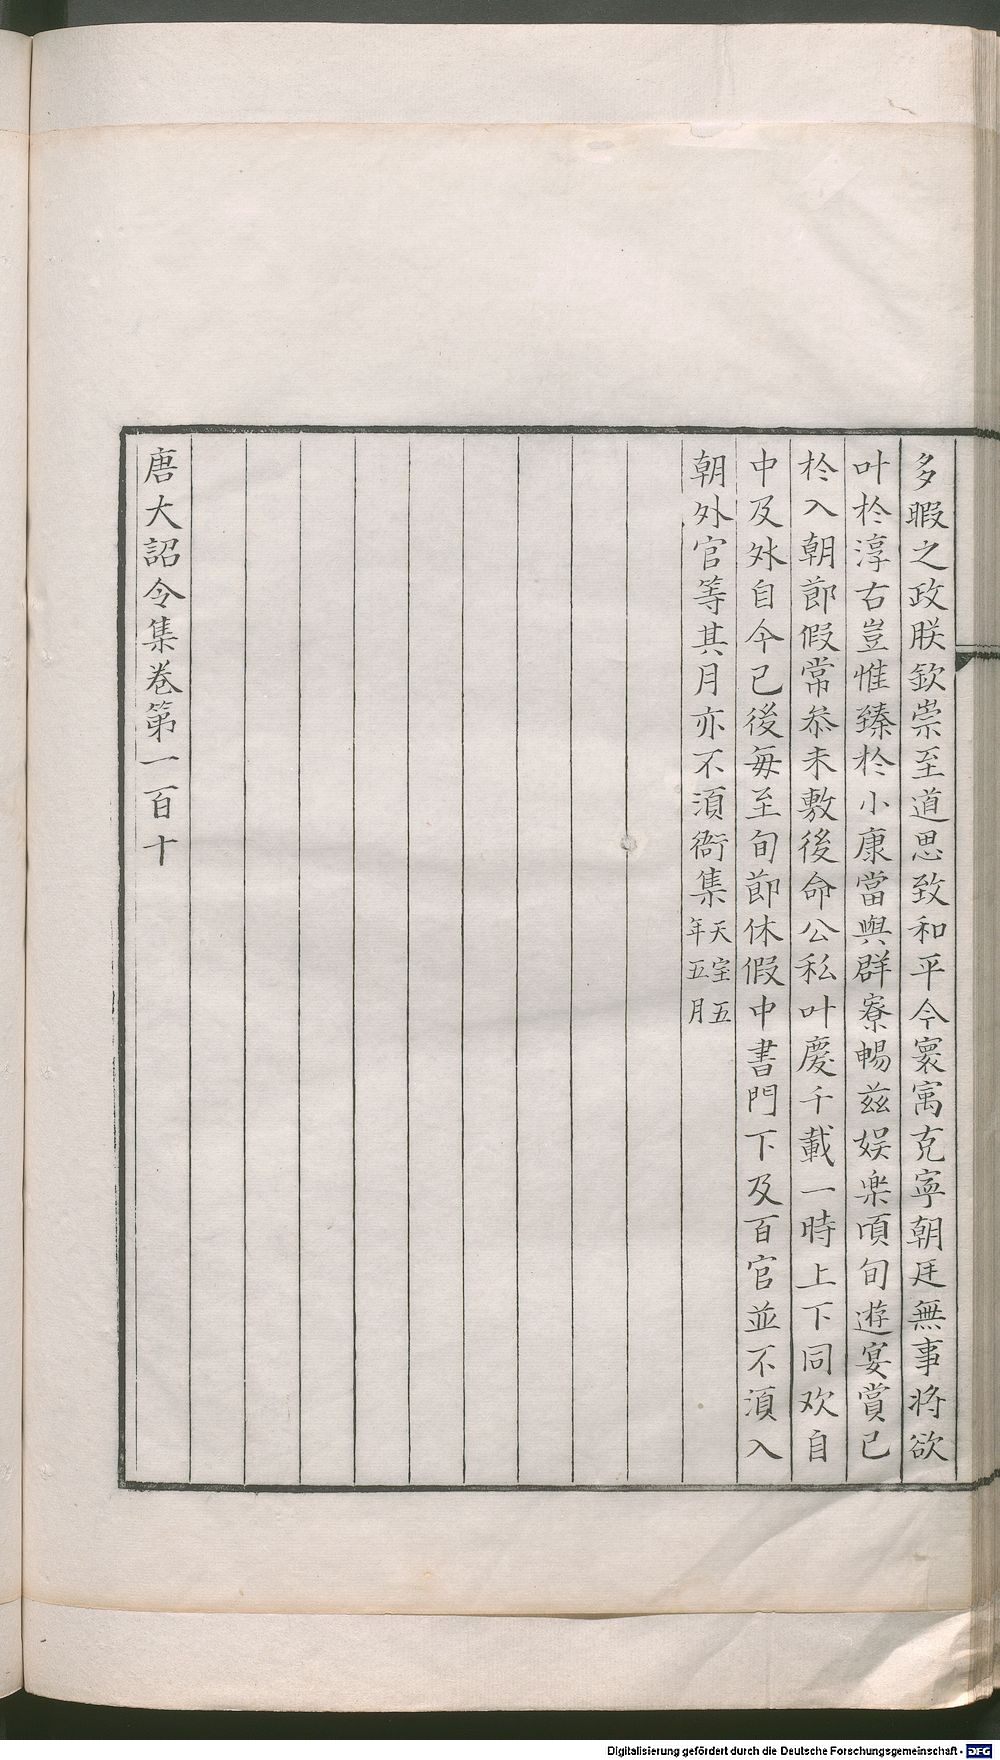 多暇之政朕欽崇至道思致和平今寰寓克寧朝廷無事将欲
叶於淳古豈惟臻於小康當與群寮暢茲娱樂頃旬遊宴賞已
於入朝節假常叅未敷後命公私叶慶千載一時上下同欢自
中及外自今已後每至旬節休假中書門下及百官並不湏入
朝外官等其月亦不湏衙集天宝五年五月
唐大詔令集卷第一百十
Digitalisierung gefördert durch die Deutsche Forschungsgemeinschaft - DFG